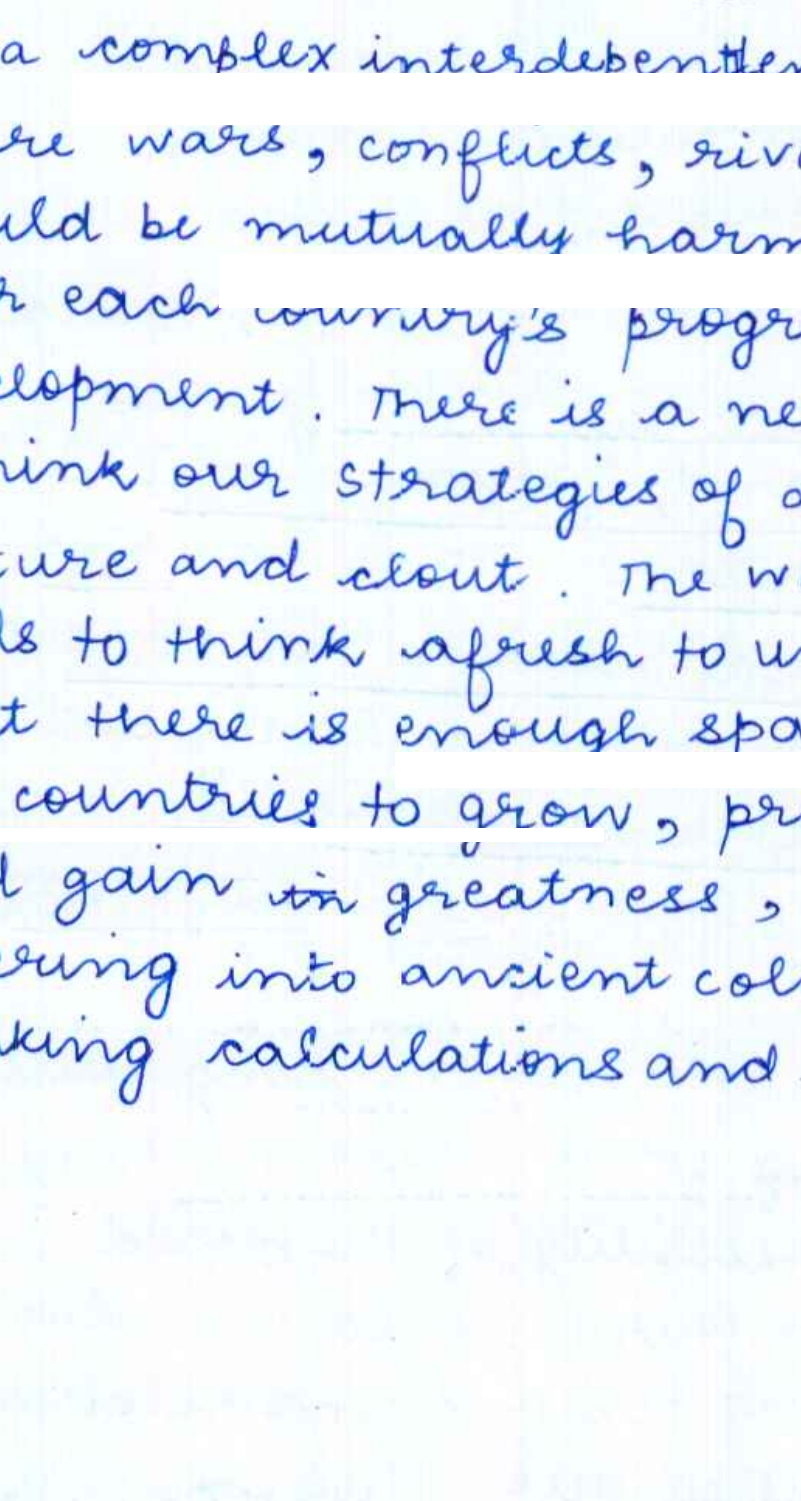 a complex interdependen
re wars, conflicts, riv
uld be mutually harm
r each country's progr
elopment. There is a ne
hink our strategies of
ture and clout. The w
ds to think afresh to
t there is enough spa
countries to grow, pr
d gain in greatness,
ering into ancient col
aking calculations and